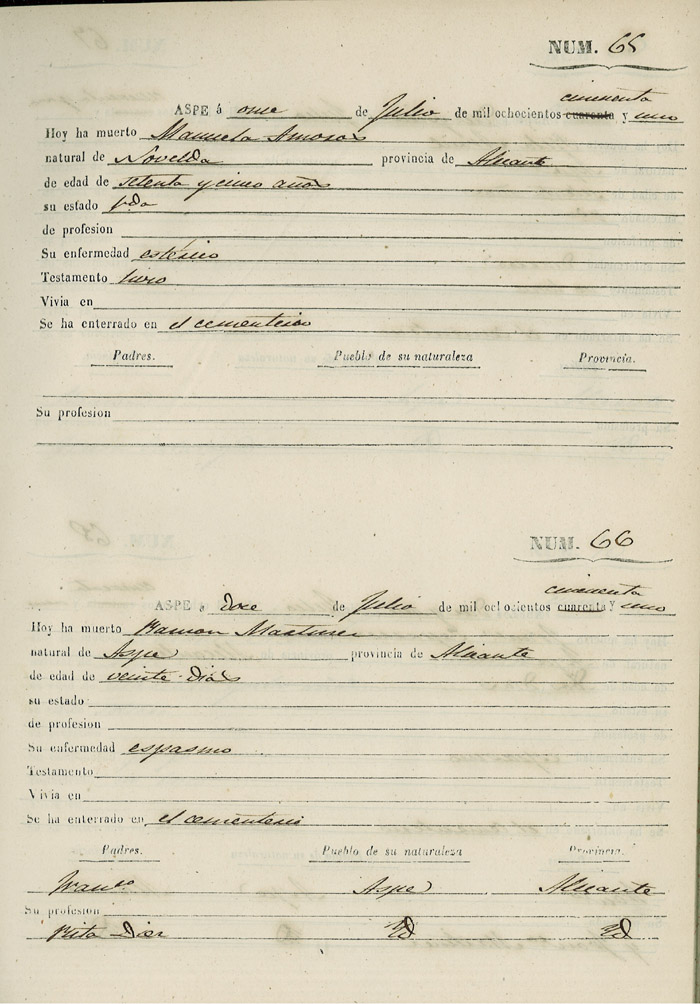 NUM. 65
cincuenta
ASPE á once de Julio de mil ochocientos cuarenta y uno
Hoy ha muerto Manuela Amoros
natural de Novelda provincia de Alicante
de edad de setenta y cinco años
su estado Vda
de profesion
Su enfermedad
Testamento hizo
Vivia en
Se ha enterrado en el cementerio
Padres. Pueblo de su naturaleza Provincia.
Su profesion
NUM. 66
cincuenta
ASPE á doce de Julio de mil ochocientos cuarenta y uno
Hoy ha muerto Ramon Martinez
natural de Aspe provincia de Alicante
de edad de veinte dias
su estado
de profesion
Su enfermedad espasmo
Testamento
Vivia en
Se ha enterrado en el cementerio
Padres. Pueblo de su naturaleza Provincia.
Franco Aspe Alicante
Su profesion
Rita Diez Id Id